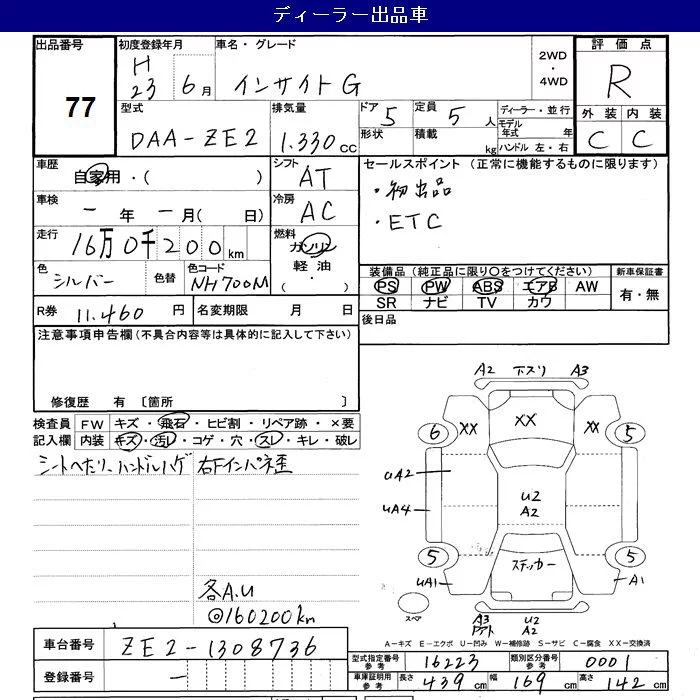 ディーラー出品車
出品番号
77
初度登録年月
H
23 6月
車名・グレード
インサイトG
2WD
・
4WD
評価点
R
外装 内装
C C
型式
DAA-ZE2
排気量
1.330cc
ドア 5
定員 5人
形状
積載 kg
ディーラー・並行
モデル年式 年
ハンドル 左・右
車歴
自家用・( )
シフト
AT
セールスポイント（正常に機能するものに限ります）
・初出品
・ETC
車検
一年 一月(日)
冷房
AC
走行
16万0千200km
燃料
ガソリン
軽油・
( )
色
シルバー
色替
色コード
NH700M
装備品（純正品に限り○をつけてください）
PS PW ABS エアB AW
SR ナビ TV カワ
新車保証書
有・無
R券 11.460円
名変期限 月 日
後日品
注意事項申告欄（不具合内容等は具体的に記入して下さい）
修復歴 有 〔箇所 〕
検査員記入欄
FW キズ・飛石・ヒビ割・リペア跡・×要
内装 キズ・汚レ・コゲ・穴・スレ・キレ・破レ
シートヘたり、ハンドルハゲ 右Fインパネ歪
各A.U
◎160200km
A2 下スリ A3
XX XX XX
6 5
UA2
UA4
U2
A2
5 5
ステッカー
UA1 A1
スペア
A3 U2
A2
A－キズ E－エクボ U－凹み W－補修跡 S－サビ C－腐食 XX－交換済
車台番号 ZE2-1308736
登録番号 －
型式指定番号 参考 16223
類別区分番号 参考 0001
車庫証明用 参考 長さ 439cm 幅 169cm 高さ 142cm